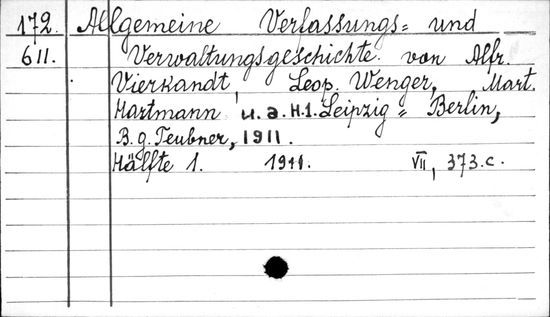 172. Allgemeine Verfassungs= und
611. Verwaltungsgeschichte. von Alfr.
Vierkandt, Leop. Wenger, Mart.
Hartmann u. a. H.1. Leipzig = Berlin,
B. g. Teubner, 1911.
Hälfte 1. 1911. VII, 373.c.